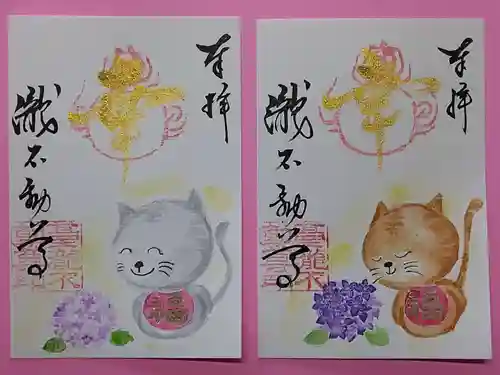 奉拝
瀧不動尊
福
奉拝
瀧不動尊
福